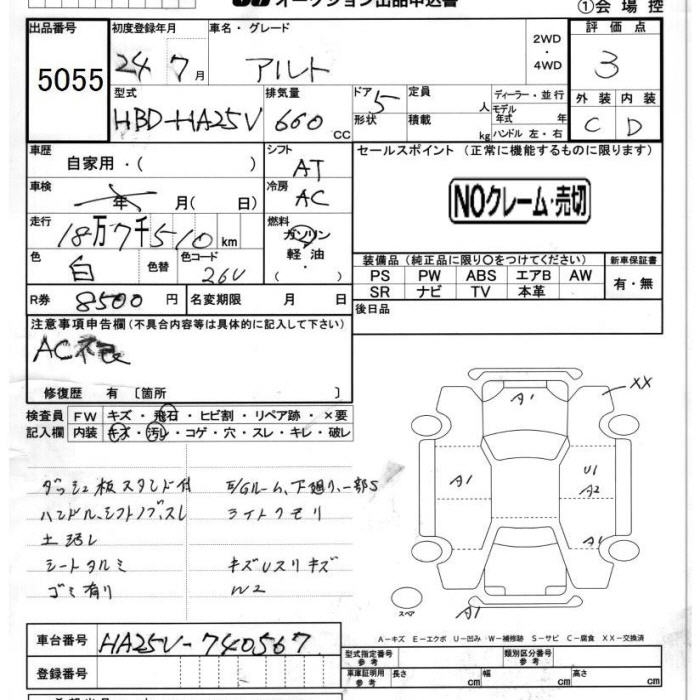 オークション出品申込書
①会場控
出品番号 5055
初度登録年月 24 7月
車名・グレード アルト
2WD・4WD
評価点 3
型式 HBD-HA25V
排気量 660 cc
ドア 5
形状
定員 人
積載 kg
ディーラー・並行
モデル年式 年
ハンドル 左・右
外装 C
内装 D
車歴 自家用・( )
シフト AT
セールスポイント (正常に機能するものに限ります)
車検 年 月( 日)
冷房 AC
NOクレーム・売切
走行 18万7千510km
燃料 ガソリン 軽油・( )
色 白
色替
色コード 26U
装備品 (純正品に限り○をつけてください)
新車保証書
PS PW ABS エアB AW
SR ナビ TV 本革
有・無
R券 8500円
名変期限 月 日
後日品
注意事項申告欄 (不具合内容等は具体的に記入して下さい)
AC不良
修復歴 有 〔箇所 〕
検査員記入欄
FW キズ・飛石・ヒビ割・リペア跡・×要
内装 キズ・汚レ・コゲ・穴・スレ・キレ・破レ
ダッシュ板スタンド付
ハンドル、シフトノブ、スレ
土汚レ
シートタルミ
ゴミ有り
E/Gルーム、下廻り、一部S
ライトクモリ
キズUスリキズ
W2
A1
XX
A1
U1
A2
A1
スペア
A1
A-キズ E-エクボ U-凹み W-補修跡 S-サビ C-腐食 XX-交換済
車台番号 HA25V-740567
登録番号
型式指定番号 参考
類別区分番号 参考
車庫証明用 参考 長さ cm 幅 cm 高さ cm